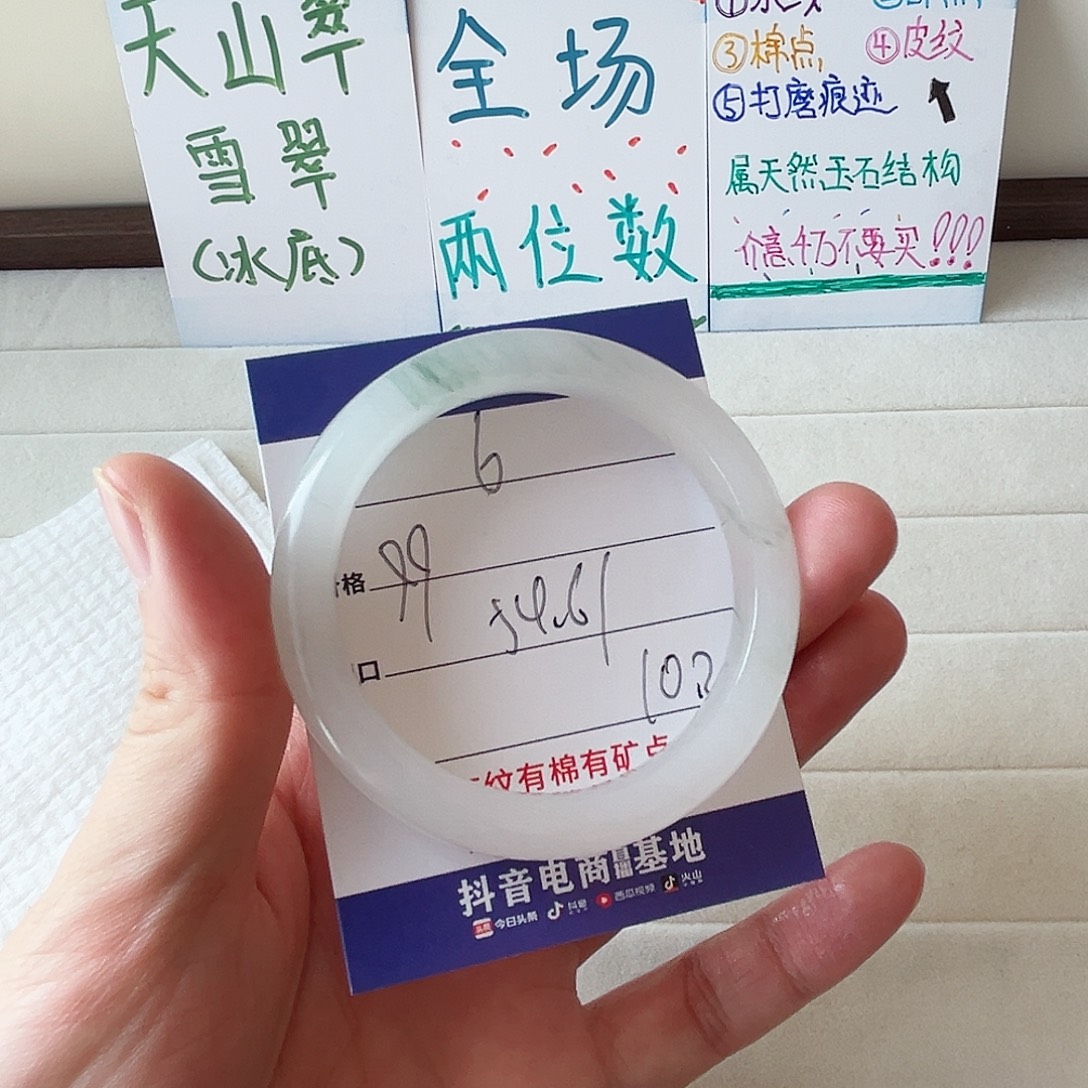 天山翠
雪翠
（冰底）
全场
两位数
③棉点 ④皮纹
⑤打磨痕迹
属天然玉石结构
介意千万不要买!!!
6
格 99
54.61
口
102
纹有棉有矿点
抖音电商直播基地
头条 今日头条 抖音 西瓜视频 火山